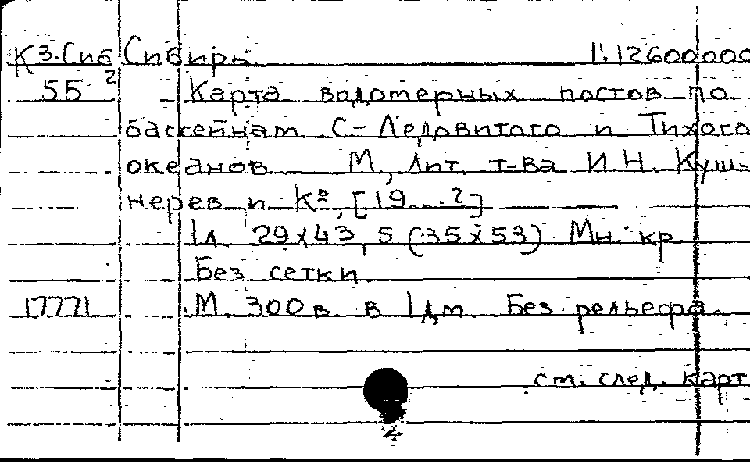 К 3.Сиб Сибирь 1:12600000
55 2 Карта водомерных постов по
бассейнам С-Ледовитого и Тихого
океанов М., Лит. т-ва И.Н. Куш-
нерев и Кº, [19...?]
1 л. 29х43,5 (35х53) Мн. кр.
Без сетки.
17771 М. 300 в. в 1 дм. Без рельефа.
см. след. карт